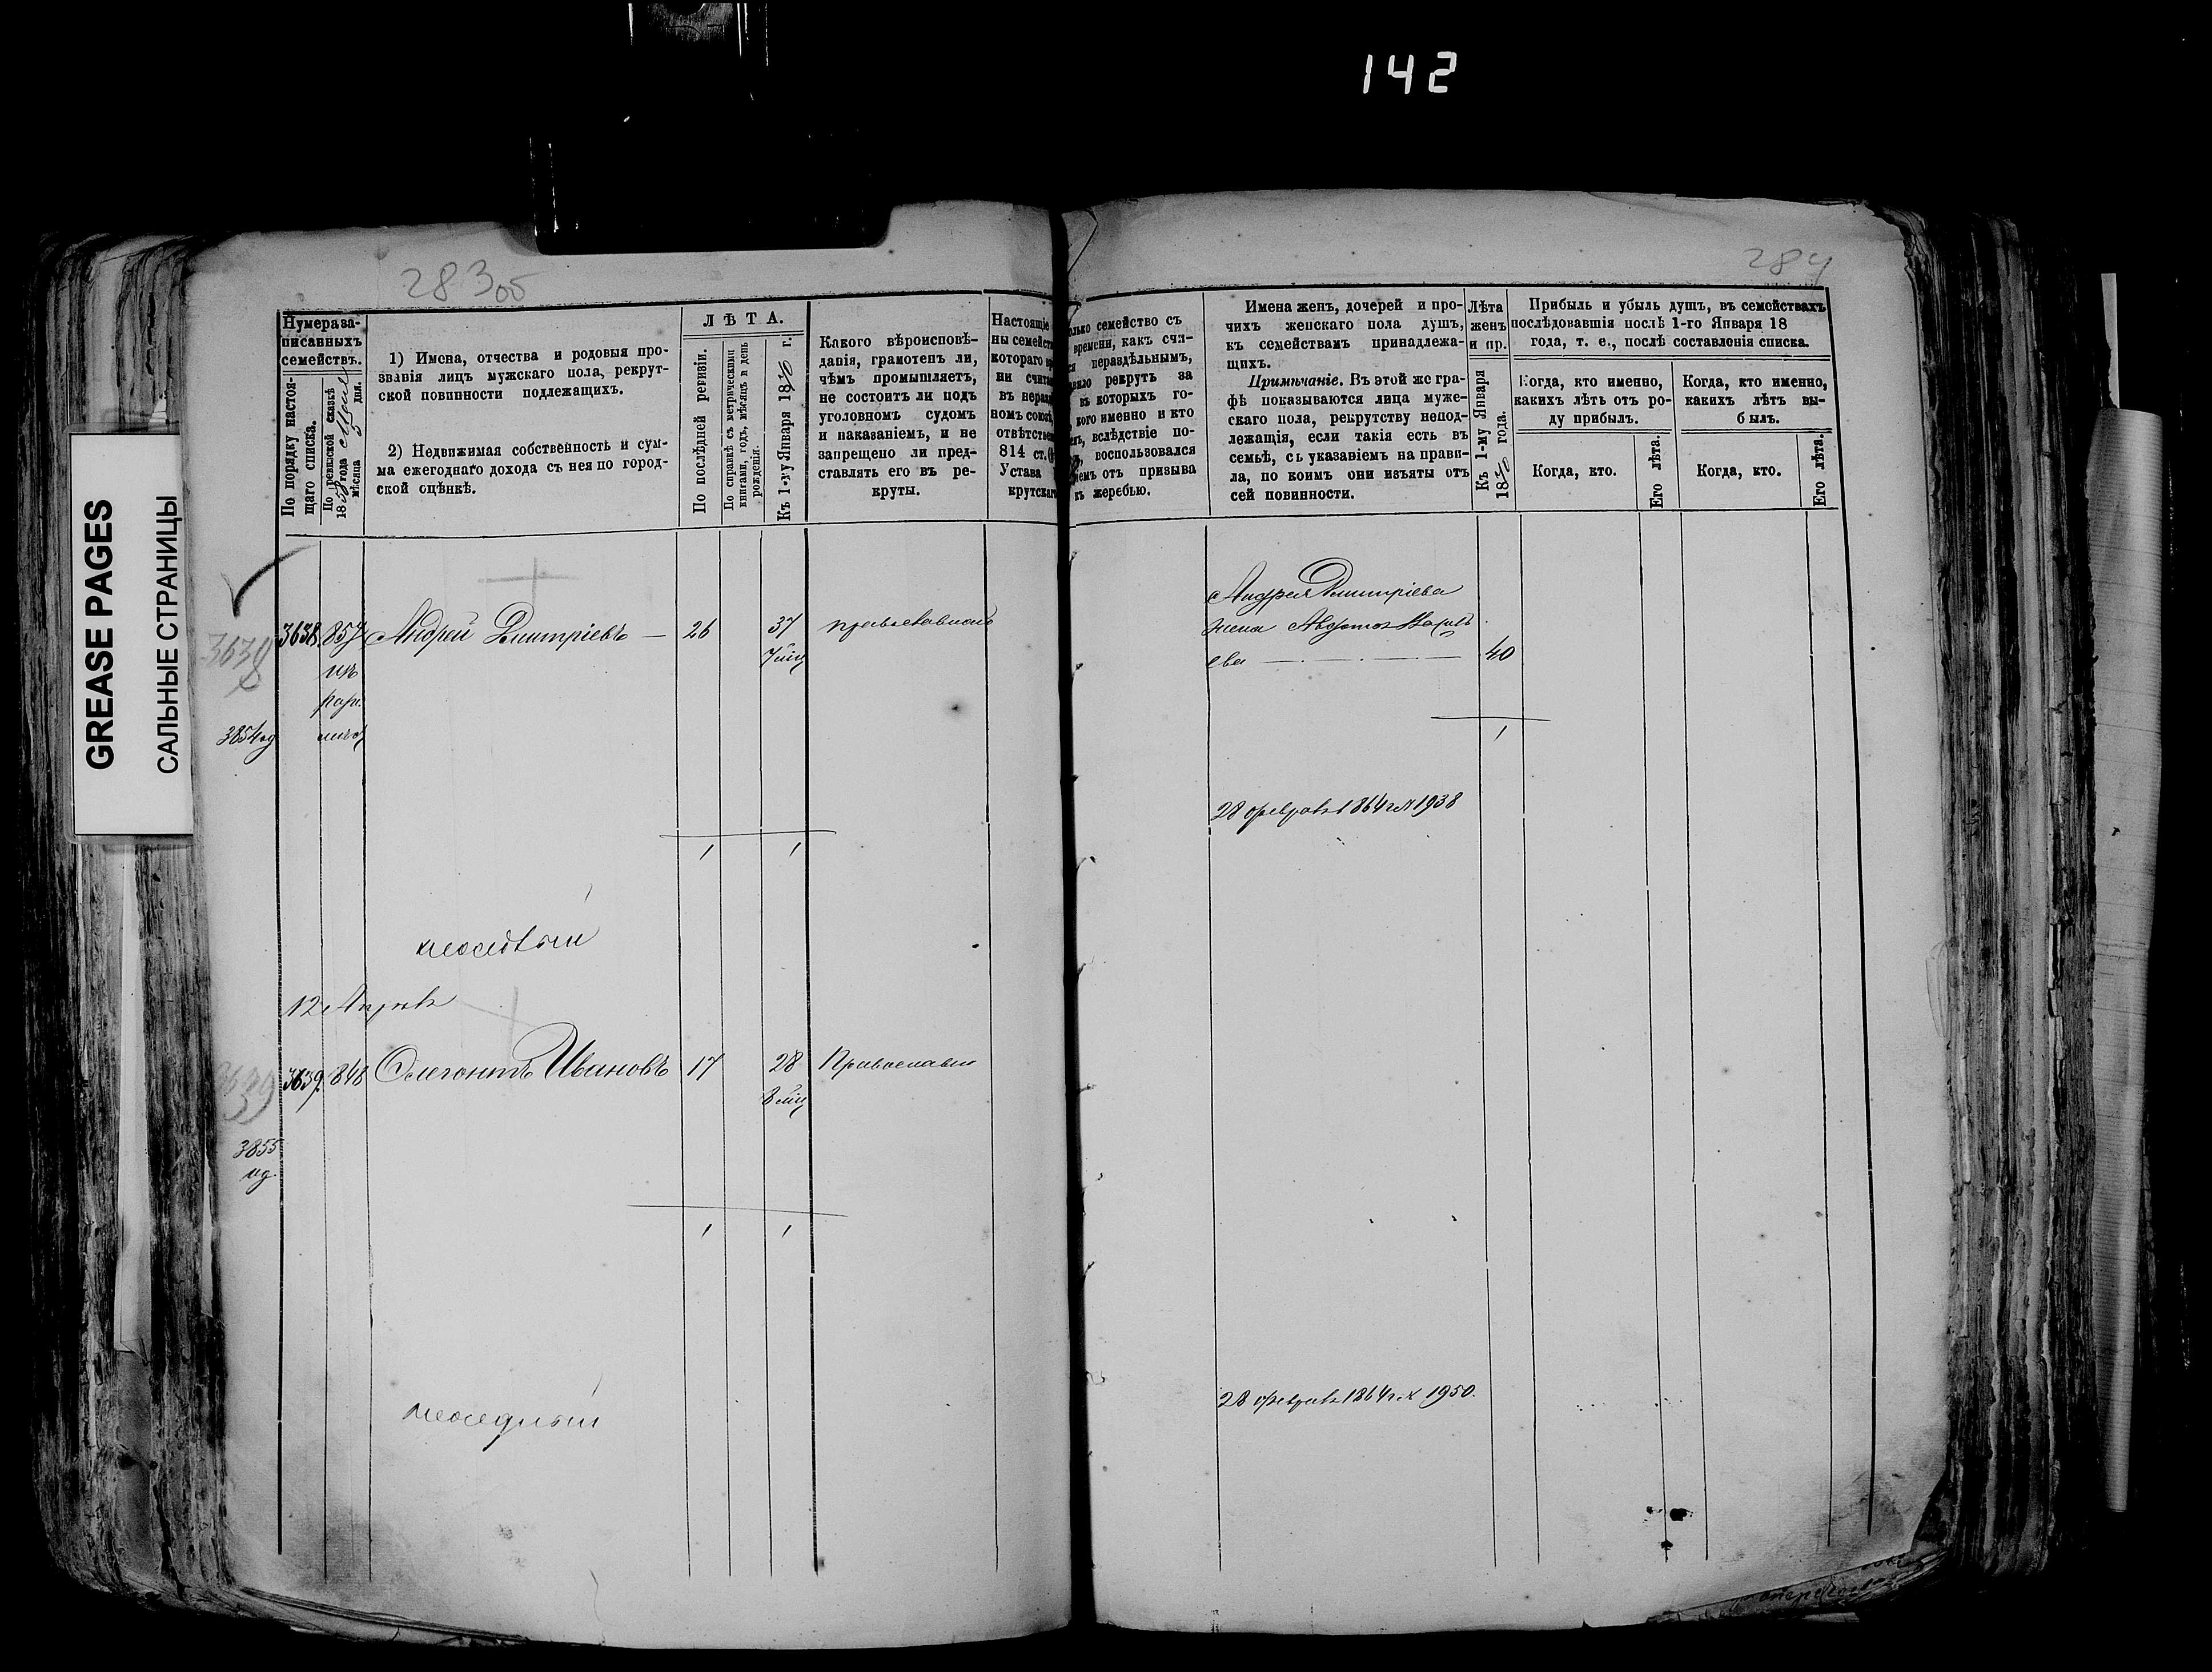 142
GREASE PAGES
САЛЬНЫЕ СТРАНИЦЫ
283об
284
Нумера за-
писанныхъ
семействъ.
По порядку настоя-
щаго списка.
По ревизской сказкѣ
1858 года
мѣсяца 5 дня.
1) Имена, отчества и родовыя про-
званія лицъ мужскаго пола, рекрут-
ской повинности подлежащихъ.
2) Недвижимая собственность и сум-
ма ежегоднаго дохода съ нея по город-
ской оцѣнкѣ.
ЛѢТА.
По послѣдней ревизіи.
По справкѣ съ метрическими
книгами, годъ, мѣсяцъ и день
рожденія.
Къ 1-му Января 1870 г.
Какого вѣроисповѣ-
данія, грамотенъ ли,
чѣмъ промышляетъ,
не состоитъ ли подъ
уголовномъ судомъ
и наказаніемъ, и не
запрещено ли пред-
ставлять его въ ре-
круты.
Настоящіе
ны семейст
котораго
ни счита
въ нераз
номъ союз
отвѣтствен
814 ст.
Устава
крутскаг
олько семейство съ
времени, какъ счи-
нераздѣльнымъ,
рекрутъ за
въ которыхъ го-
кого именно и кто
вслѣдствіе по-
воспользовался
емъ отъ призыва
къ жеребью.
Имена женъ, дочерей и про-
чихъ женскаго пола душъ,
къ семействамъ принадлежа-
щихъ.
Примѣчаніе. Въ этой же гра-
фѣ показываются лица муже-
скаго пола, рекрутству непод-
лежащія, если такія есть въ
семьѣ, съ указаніемъ на прави-
ла, по коимъ они изъяты отъ
сей повинности.
Лѣта
женъ
и пр.
Къ 1-му Января
1870 года.
Прибыль и убыль душъ, въ семействахъ
послѣдовавшія послѣ 1-го Января 18
года, т. е., послѣ составленія списка.
Когда, кто именно,
какихъ лѣтъ отъ ро-
ду прибылъ.
Когда, кто именно,
какихъ лѣтъ вы-
былъ.
Когда, кто.
Его лѣта.
Когда, кто.
Его лѣта.
3638
3638. 857 Андрей Дмитріевъ — 26 37 православнаго
7 мц
изъ
3854
1 1
Андрея Дмитріева
жена
ева 40
1
28 февраля 1864 г № 1938
12 Апрѣл
3639
3639. 848 Олегонтъ Ивановъ 17 28 Православн
8 мц
3855
1 1
неоседлый
28 февраля 1864 г № 1950.